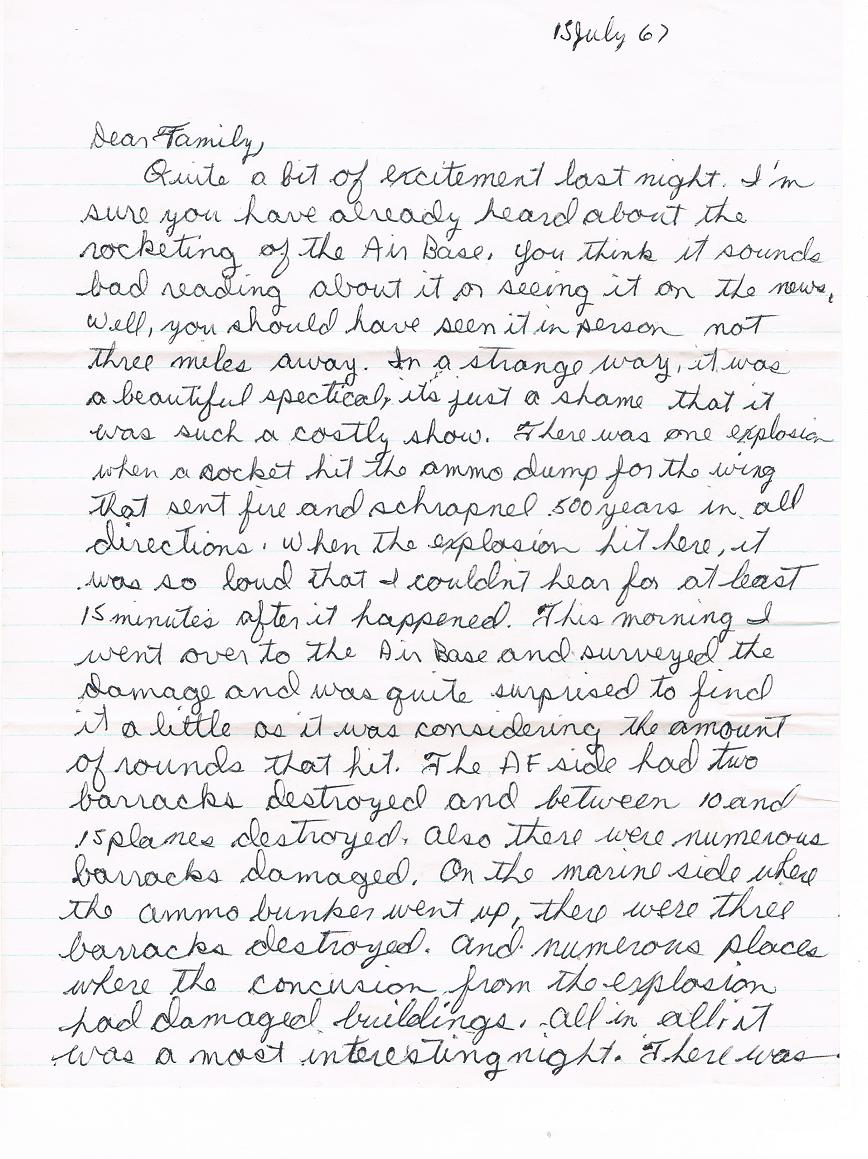 15 July 67
Dear Family,
Quite a bit of excitement last night. I'm
sure you have already heard about the
rocketing of the Air Base. You think it sounds
bad reading about it or seeing it on the news,
Well, you should have seen it in person not
three miles away. In a strange way, it was
a beautiful spectical, it's just a shame that it
was such a costly show. There was one explosion
when a rocket hit the ammo dump for the wing
that sent fire and schrapnel 500 years in all
directions. When the explosion hit here, it
was so loud that I couldn't hear for at least
15 minutes after it happened. This morning I
went over to the Air Base and surveyed the
damage and was quite surprised to find
it a little as it was considering the amount
of rounds that hit. The AF side had two
barracks destroyed and between 10 and
15 planes destroyed. Also there were numerous
barracks damaged. On the marine side where
the ammo bunker went up, there were three
barracks destroyed. And numerous places
where the concusion from the explosion
had damaged buildings. All in all, it
was a most interesting night. There was